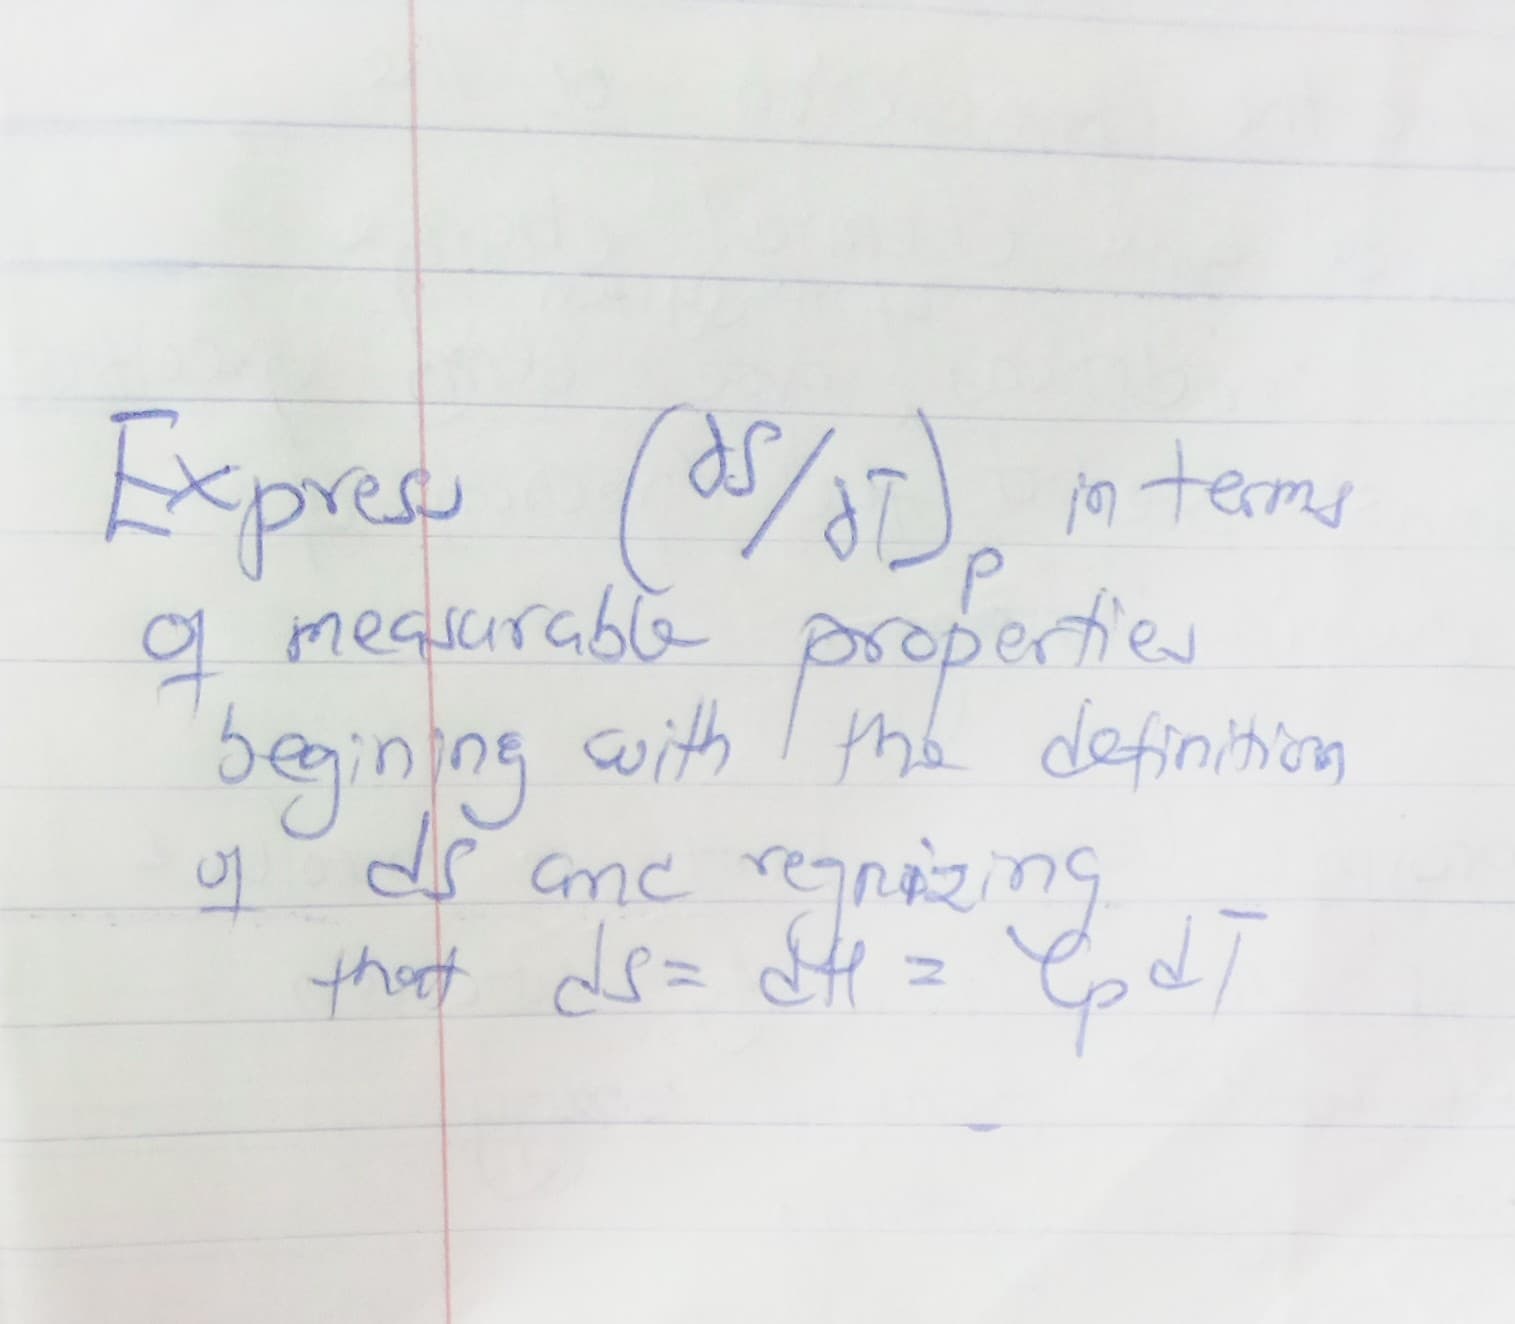 Express (∂S/∂T)p in terms
of measurable properties
begining with the definition
of dS and regnizing
that dS = dH = CpdT